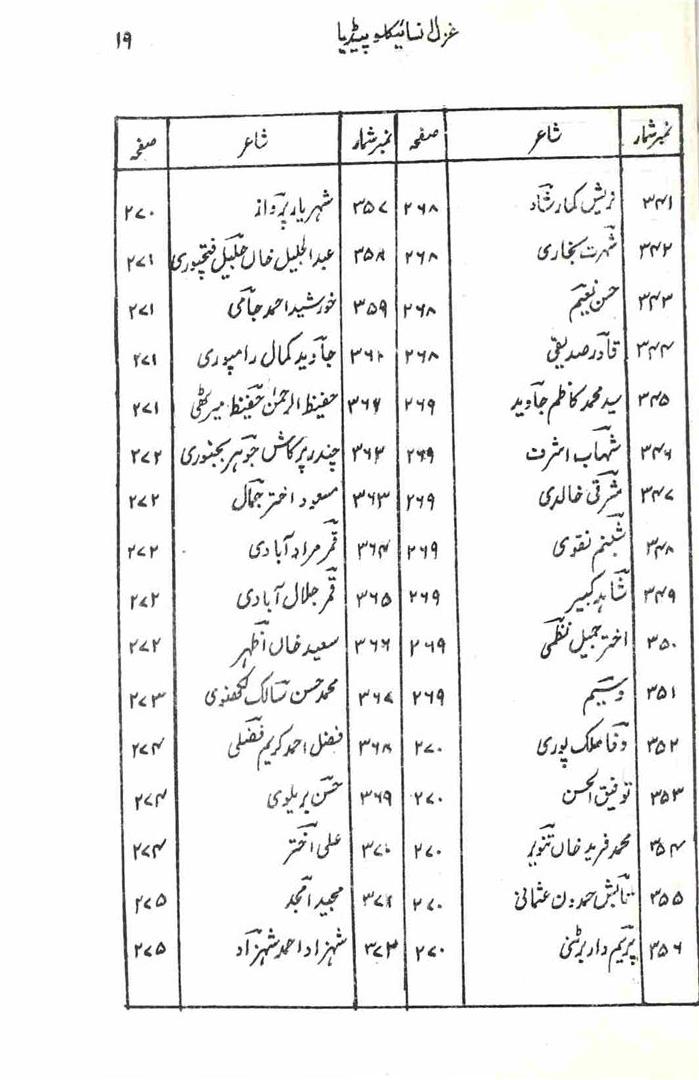 ۱۹ غزل انسائیکلوپیڈیا
نمبر شمار شاعر صفحہ نمبر شمار شاعر صفحہ
۳۴۱ نریش کمار شاد ۲۶۸ ۳۵۷ شہریار پرواز ۲۷۰
۳۴۲ شہرت بخاری ۲۶۸ ۳۵۸ عبدالجلیل خاں جلیل فتحپوری ۲۷۱
۳۴۳ حسن نعیم ۲۶۸ ۳۵۹ خورشید احمد جامی ۲۷۱
۳۴۴ قادر صدیقی ۲۶۸ ۳۶۰ جاوید کمال رامپوری ۲۷۱
۳۴۵ سید محمد کاظم جاوید ۲۶۹ ۳۶۱ حفیظ الرحمٰن حفیظ میرٹھی ۲۷۱
۳۴۶ شہاب اشرف ۲۶۹ ۳۶۲ چندر پرکاش جوہر بجنوری ۲۷۲
۳۴۷ شرقی خالدی ۲۶۹ ۳۶۳ مسعود اختر جمال ۲۷۲
۳۴۸ شبنم نقوی ۲۶۹ ۳۶۴ قمر مرادآبادی ۲۷۲
۳۴۹ شاہد کبیر ۲۶۹ ۳۶۵ قمر جلال آبادی ۲۷۲
۳۵۰ اختر جمیل نظمی ۲۶۹ ۳۶۶ سعید خاں اظہر ۲۷۲
۳۵۱ وسیم ۲۶۹ ۳۶۷ محمد حسن سالک لکھنوی ۲۷۳
۳۵۲ وفا ملک پوری ۲۷۰ ۳۶۸ فضل احمد کریم فضلی ۲۷۴
۳۵۳ توفیق الحسن ۲۷۰ ۳۶۹ حسن بریلوی ۲۷۴
۳۵۴ محمد فرید خاں تنویر ۲۷۰ ۳۷۰ علی اختر ۲۷۴
۳۵۵ تابش حمدون عثمانی ۲۷۰ ۳۷۱ مجید امجد ۲۷۵
۳۵۶ پریم وار برٹنی ۲۷۰ ۳۷۲ شہزاد احمد شہزاد ۲۷۵